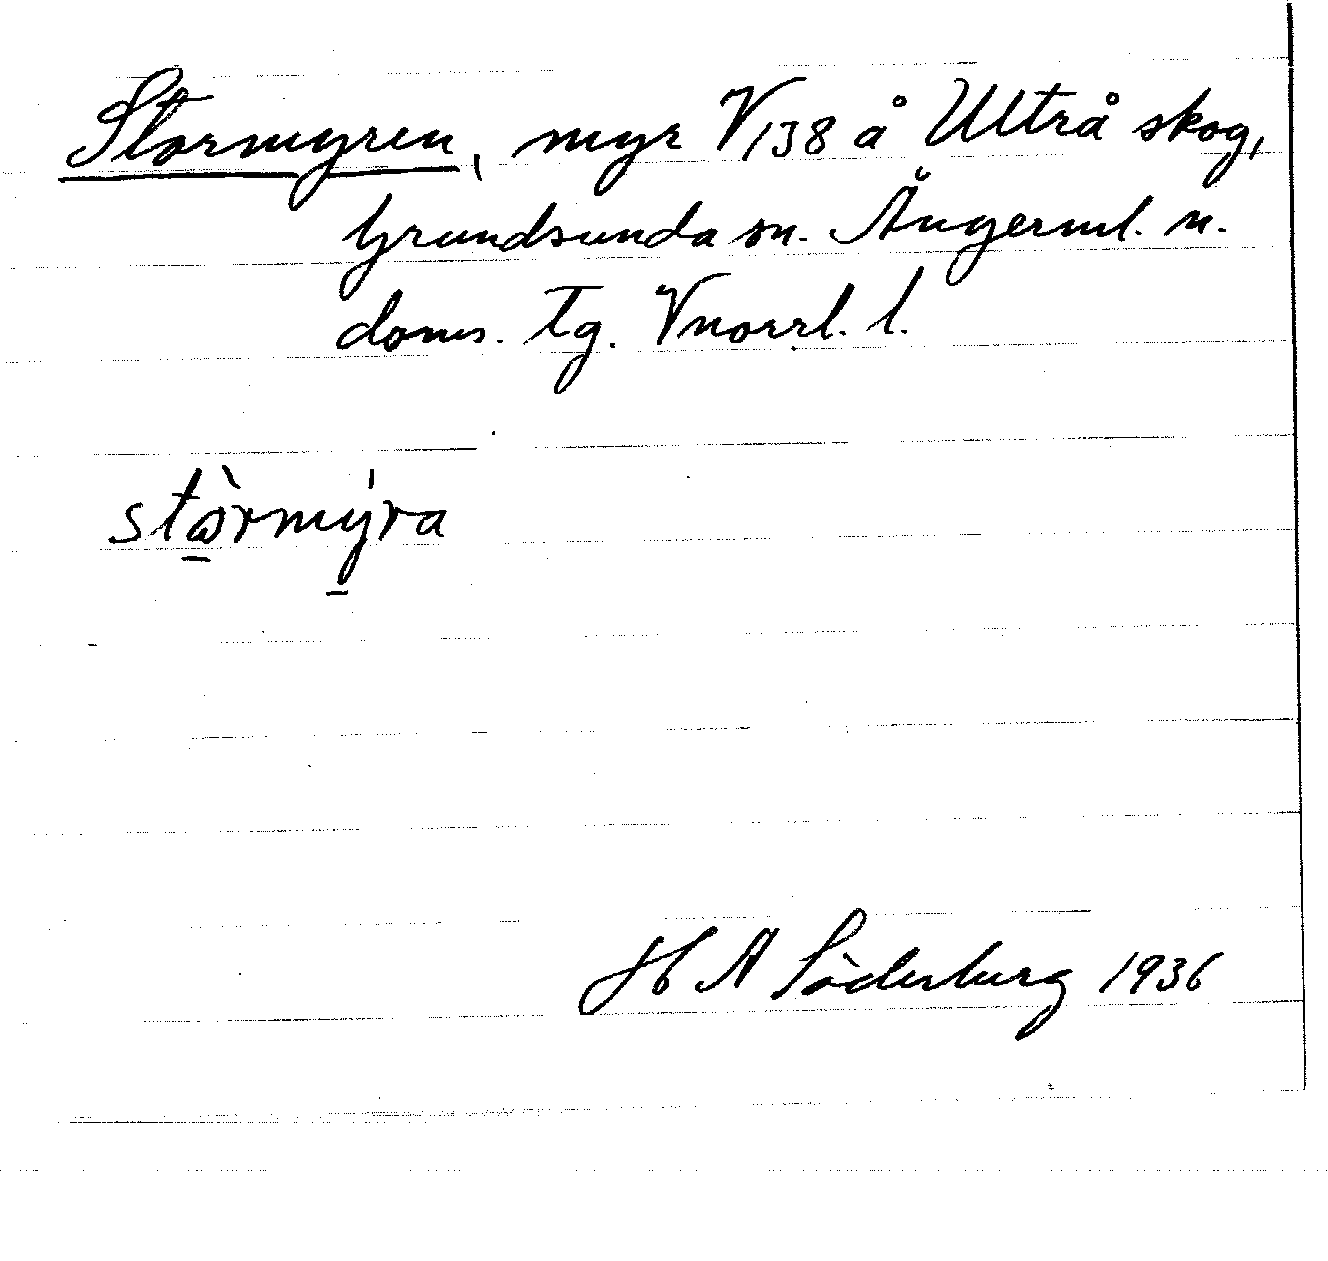 Stormyren, myr V138 å Ultrå skog,
Grundsunda sn. Ångerml. n.
doms. tg. Vnorrl. l.
stòrmýra
H A Söderberg 1936